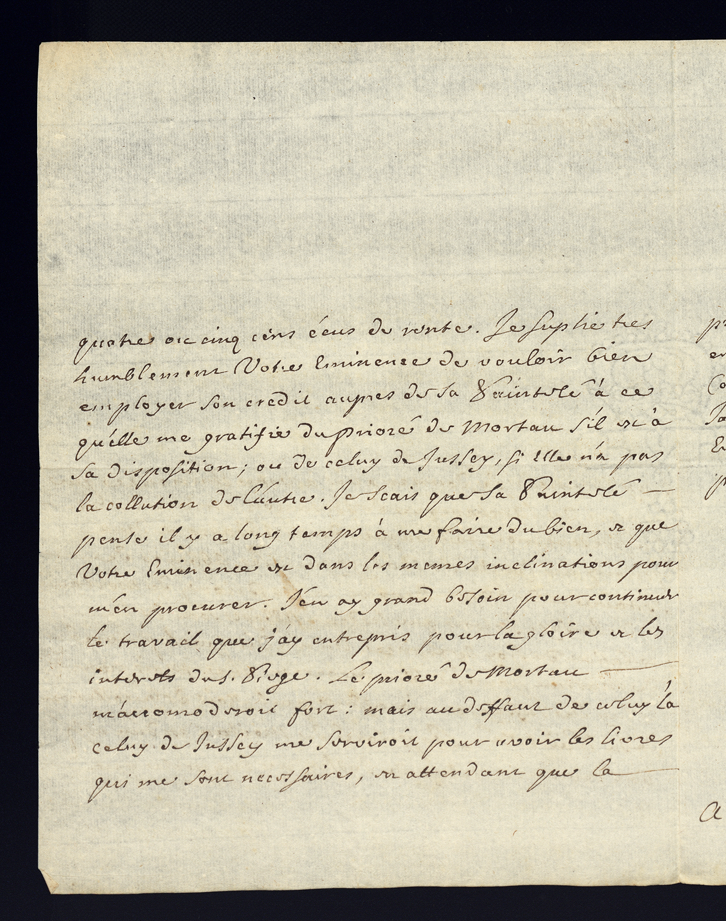 quatre ou cinq cens écus de rente. Je suplie tres
humblement Votre Eminence de vouloir bien
employer son credit aupres de sa Sainteté à ce
qu'elle me gratifie du prioré de Mortau s'il est à
sa disposition; ou de celuy de Jussey, si elle n'a pas
la collation de l'autre. Je scais que sa Sainteté
pense il y a long temps à me faire du bien, et que
Votre Eminence est dans les memes inclinations pour
m'en procurer. J'en ay grand besoin pour continuer
le travail que j'ay entrepris pour la gloire et les
interets du s. Siege. Le prioré de Mortau
m'accomoderoit fort: mais au deffaut de celuy la
celuy de Jussey me serviroit pour avoir les livres
qui me sont necessaires, en attendant que la